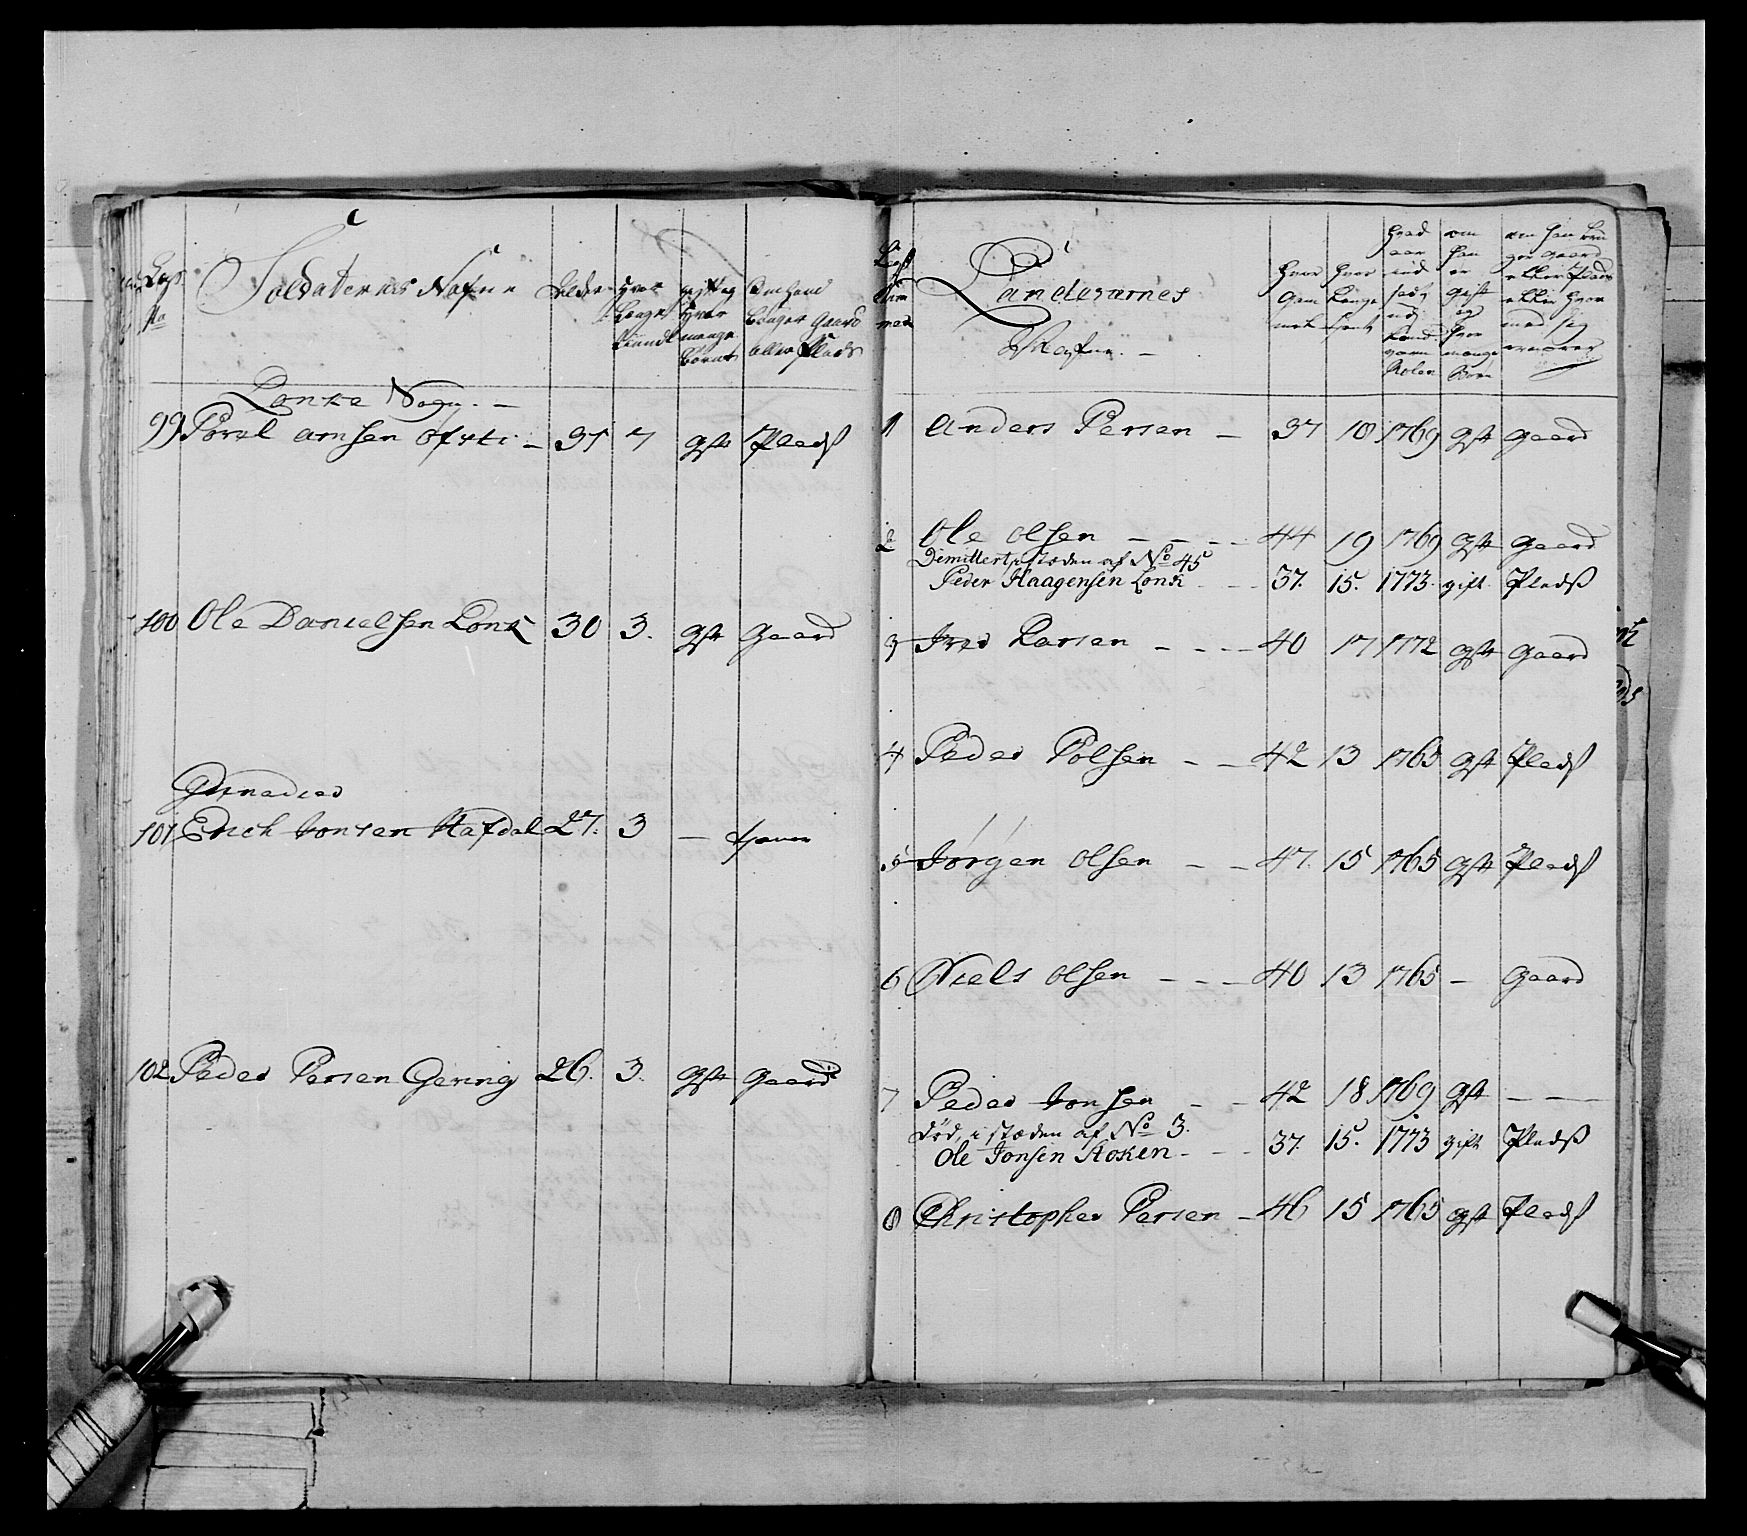 Soldaternes Nafne
Alder
Hvor længe tient
gift og Hvor mange børn
Om hand bruger Gaard eller Plads
Lonke Sogn. –
99 Povel Arnsen Øfsti – 37 7 gift Plads
100 Ole Danielsen Lonk 30 3. gift Gaard
Grenadeer
101 Erich Jonsen Hafdal 27. 3 –
102 Peder Persen Gering 26. 3. gift Gaard
Landeværnes
Nafne. –
Hvor Gammel
Hvor Længe tient
Hvad aar indsadt ved Landværn Rolen
om han er gift og Hvor mange Børn
om han bruger gaard eller Plads eller Hvor med sig ernærer
1 Anders Persen – 37 10 1769 gift Gaard
2 Ole Olsen – – – 44 19 1769 gift Gaard
Dimittert i stæden af No 45
Peder Haagensen Lonk – – 37. 15. 1773. gift. Pladß
3 Iver Larsen – – – 40 17 1772 gift Gaard
4 Peder Polsen – – 42 13 1765 gift Plads
5 Jørgen Olsen – – 47. 15 1765 gift Plads
6 Niels Olsen – – – 40 13 1765 – Gaard
7 Peder Jonsen – – 42 18 1769 gift – –
död, i stæden af No 3.
Ole Jonsen Stoken – – – 37. 15. 1773 gift Pladß
8 Christopher Persen – 46 15 1765 gift Plads